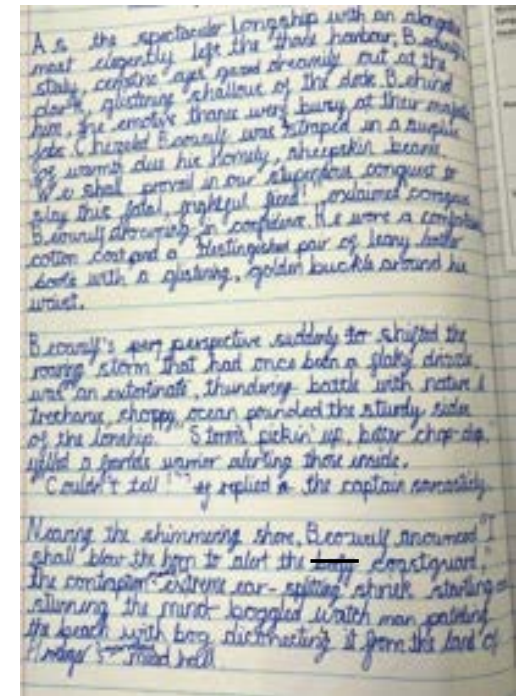 As the spectacular Longship with an
most elegently left the thane harbour, Beowulf's
eyes gazed dreamily out at the
glistening shallows of the dock. Behind
him, the emotive thanes were busy at their
jobs. Chezeled Beowulf was straped in a
of warmth due his homely, sheepskin beanie.
"We shall prevail in our stupendous conquest to
slay this fatal, frightful fiend!" exclaimed
Beowulf drowning in confidence. He wore a
cotton coat and a distinguished pair of leather
boots with a glistening, golden buckle around his
waist.
Beowulf's perspective suddenly shifted the
roaring storm that had once been a flaky drizzle,
was an extortinate, thundering battle with nature &
trecharus, choppy ocean pounded the sturdy sides
of the lonship. "Storms pickin' up, better chop-chop,"
yelled a warrior alerting those inside.
"Couldn't tell!" replied the captain sarcasticly.
Nearing the shimmering shore, Beowulf anounced "I
shall blow the horn to alert the coastguard."
the contaption extreme ear-splitting shriek startling
stunning the mind-boggled watch man patroling
the beach with bog disconecting it from the land of
mead hall